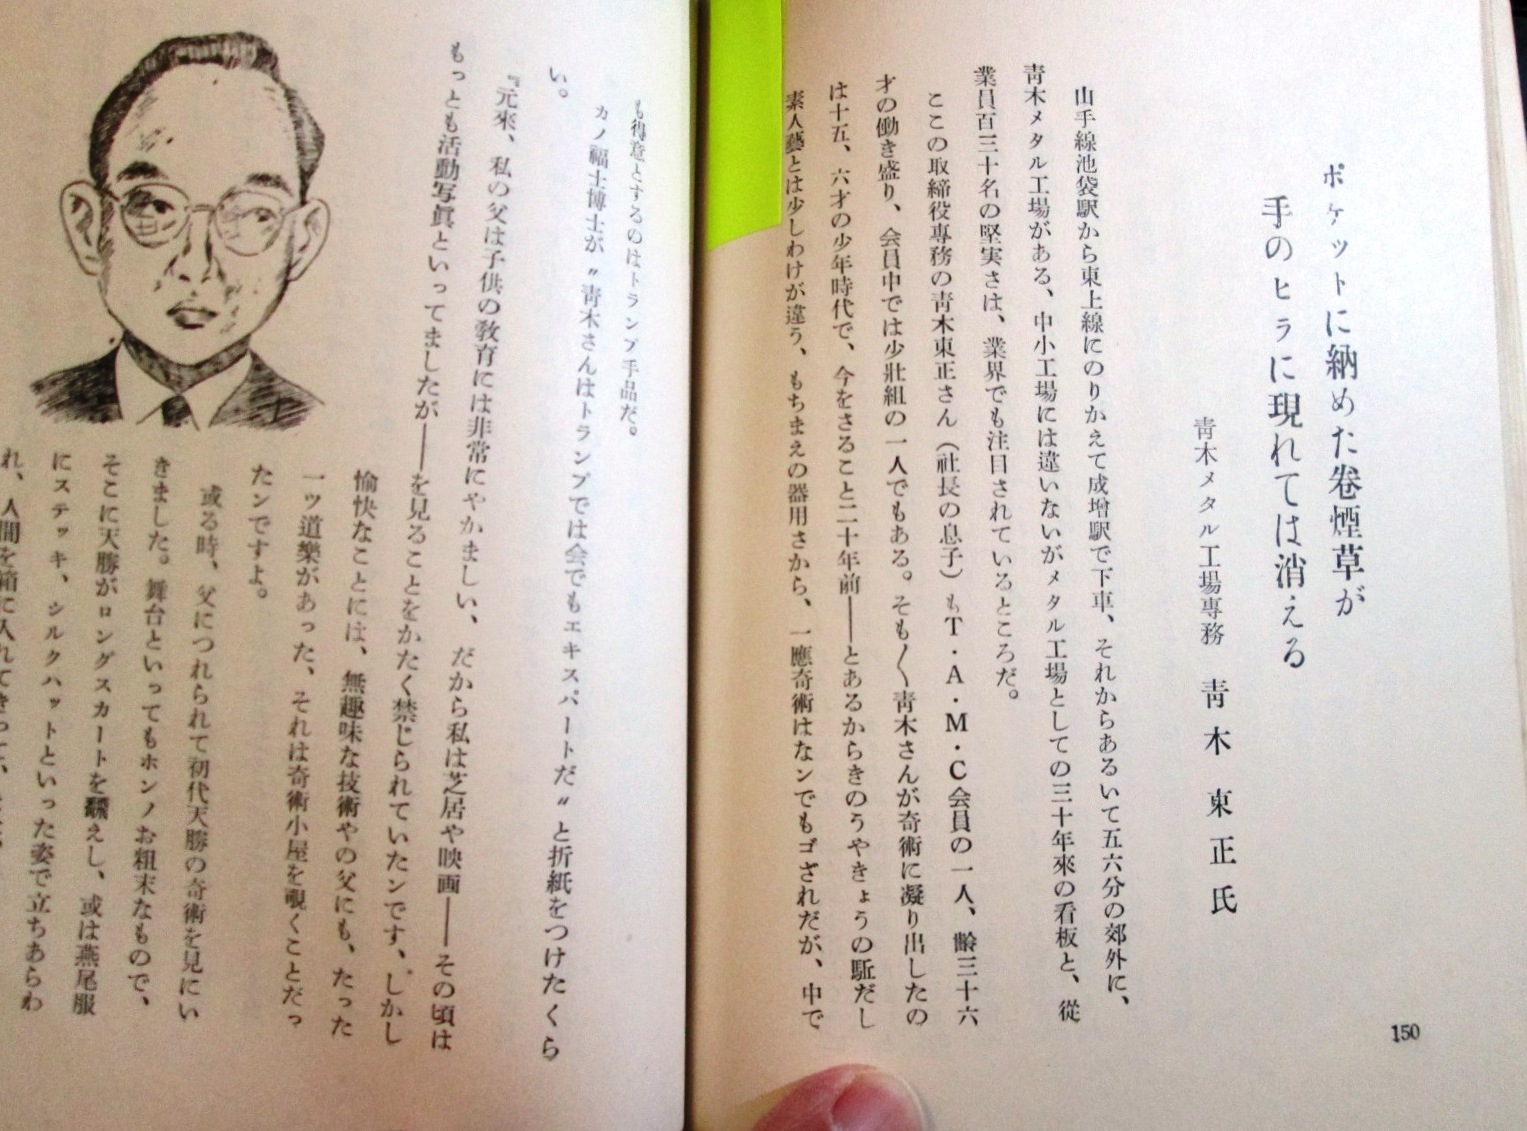 ポケットに納めた卷煙草が
手のヒラに現れては消える
靑木メタル工場専務 靑木東正氏
山手線池袋駅から東上線にのりかえて成増駅で下車、それからあるいて五六分の郊外に、
靑木メタル工場がある、中小工場には違いないがメタル工場としての三十年來の看板と、從
業員百三十名の堅実さは、業界でも注目されているところだ。
ここの取締役専務の靑木東正さん（社長の息子）もT・A・M・C会員の一人、齢三十六
才の働き盛り、会員中では少壯組の一人でもある。そも〳〵靑木さんが奇術に凝り出したの
は十五、六才の少年時代で、今をさること二十年前――とあるからきのうやきょうの駈だし
素人藝とは少しわけが違う、もちまえの器用さから、一應奇術はなンでもゴざれだが、中で
150
も得意とするのはトランプ手品だ。
カノ福士博士が〝靑木さんはトランプでは会でもエキスパートだ〟と折紙をつけたくら
い。
『元來、私の父は子供の教育には非常にやかましい、だから私は芝居や映画――その頃は
もっとも活動写眞といってましたが――を見ることをかたく禁じられていたンです、しかし
愉快なことには、無趣味な技術やの父にも、たった
一ツ道樂があった、それは奇術小屋を覗くことだっ
たンですよ。
或る時、父につれられて初代天勝の奇術を見にい
きました。舞台といってもホンノお粗末なもので、
そこに天勝がロングスカートを飜えし、或は燕尾服
にステッキ、シルクハットといった姿で立ちあらわ
れ、人間を箱に入れて